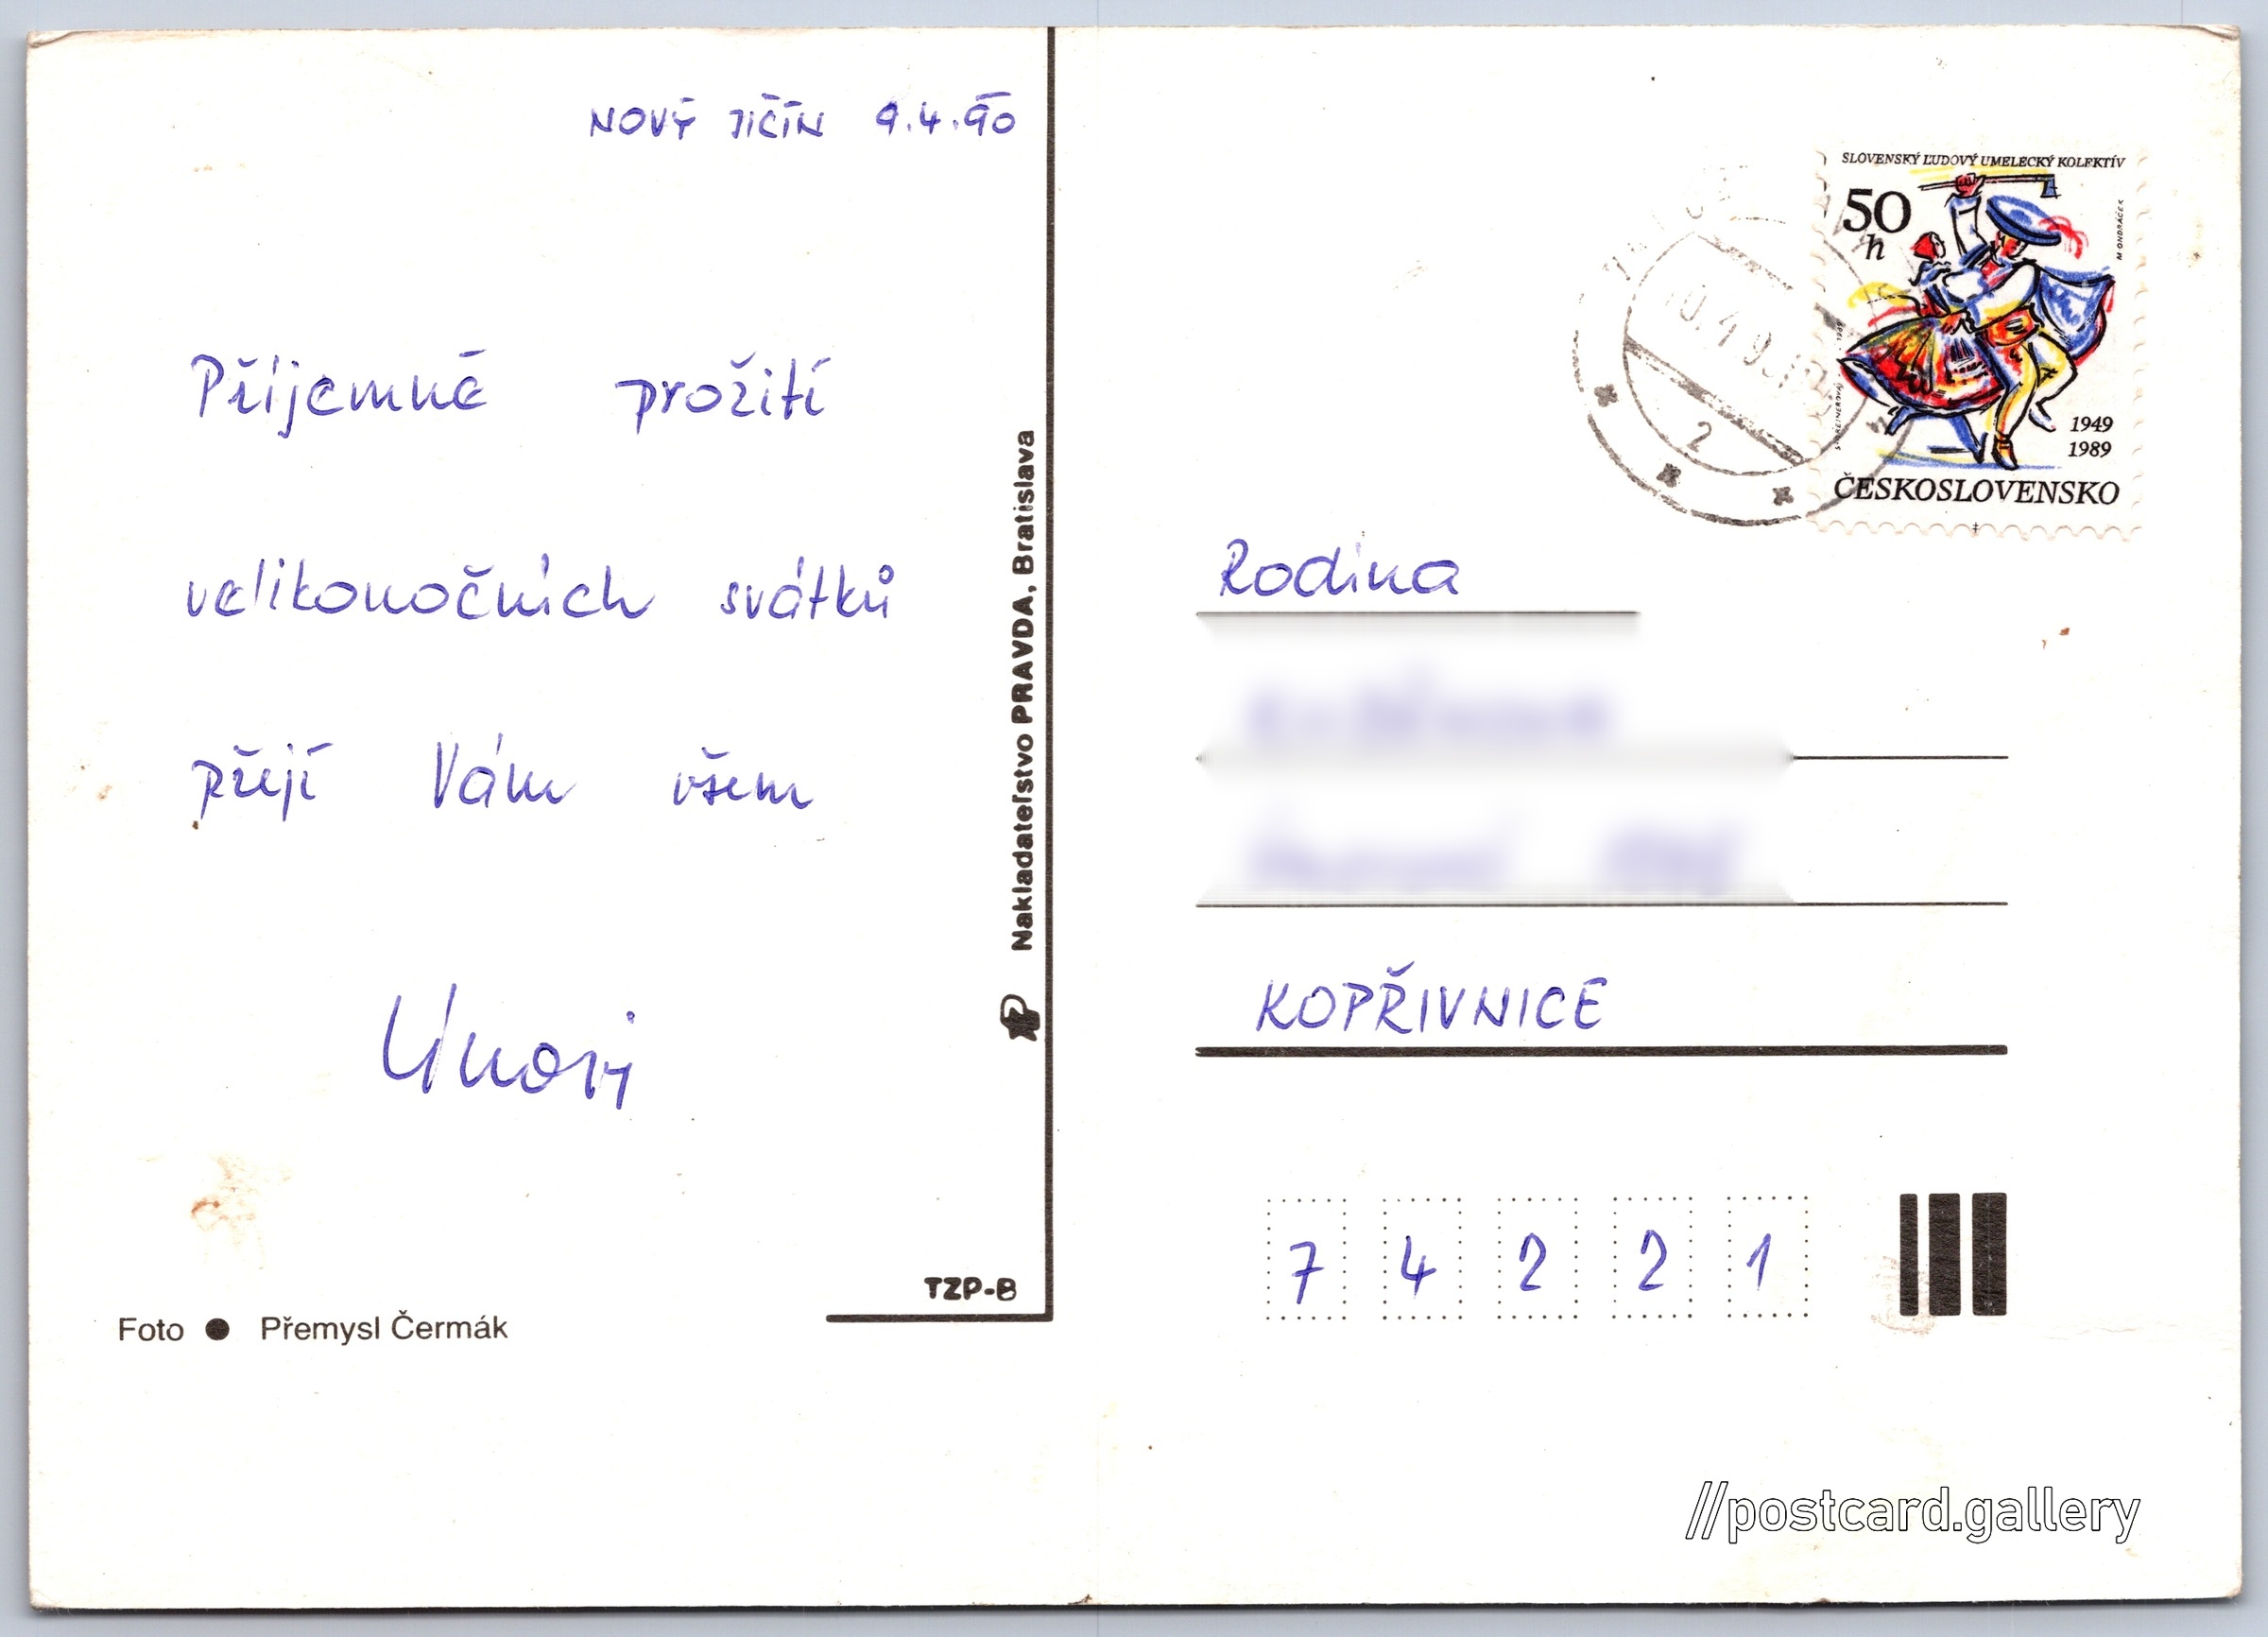 NOVÝ JIČÍN 9.4.90
Příjemné prožití
velikonočních svátků
přejí Vám všem
Únori
Nakladateľstvo PRAVDA, Bratislava
TZP-B
Foto ● Přemysl Čermák
SLOVENSKÝ ĽUDOVÝ UMELECKÝ KOLEKTÍV
50
h
M. ONDRÁČEK
1949
1989
ČESKOSLOVENSKO
2
Rodina
KOPŘIVNICE
7 4 2 2 1
//postcard.gallery